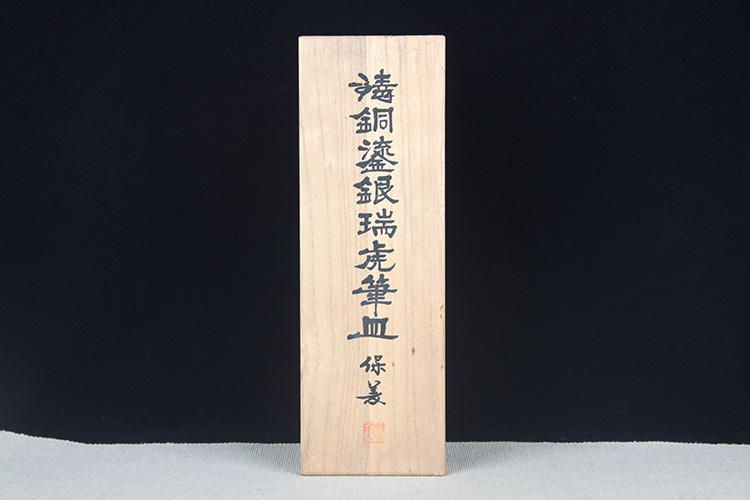 鋳銅鎏銀瑞虎筆皿
保美